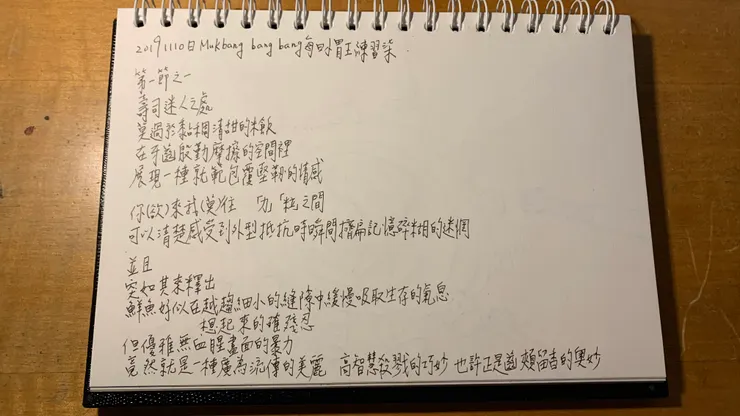 20191110日Mukbang bang bang每日胃王練習柒
第一節之一
壽司迷人之處
莫過於黏稠清甜的米飯
在牙齒殷勤摩擦的空間裡
展現一種就範包覆堅韌的情感
你(欲)來我(莫)往 「九」粒之間
可以清楚感受到外型抵抗時瞬間擠扁記憶碎糊的迷網
並且
突如其來釋出
鮮魚好似在越趨細小的縫隙中緩慢吸取生存的氣息
想起來的確殘忍
但優雅無血腥畫面的暴力
竟然就是一種廣為流傳的美麗 高智慧殺戮的巧妙 也許正是齒頰留香的奧妙